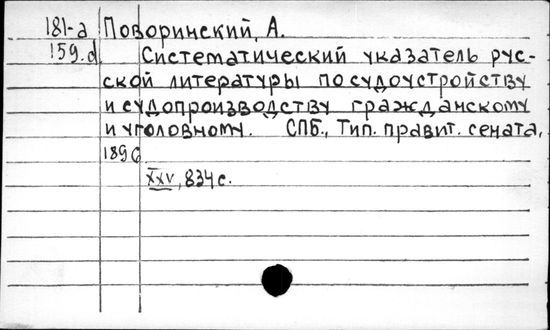 181-a Поворинский, А.
159.d Систематический указатель рус-
ской литературы по судоустройству
и судопроизводству гражданскому
и уголовному. СПБ., Тип. правит. сената,
1896
XXV, 834 с.